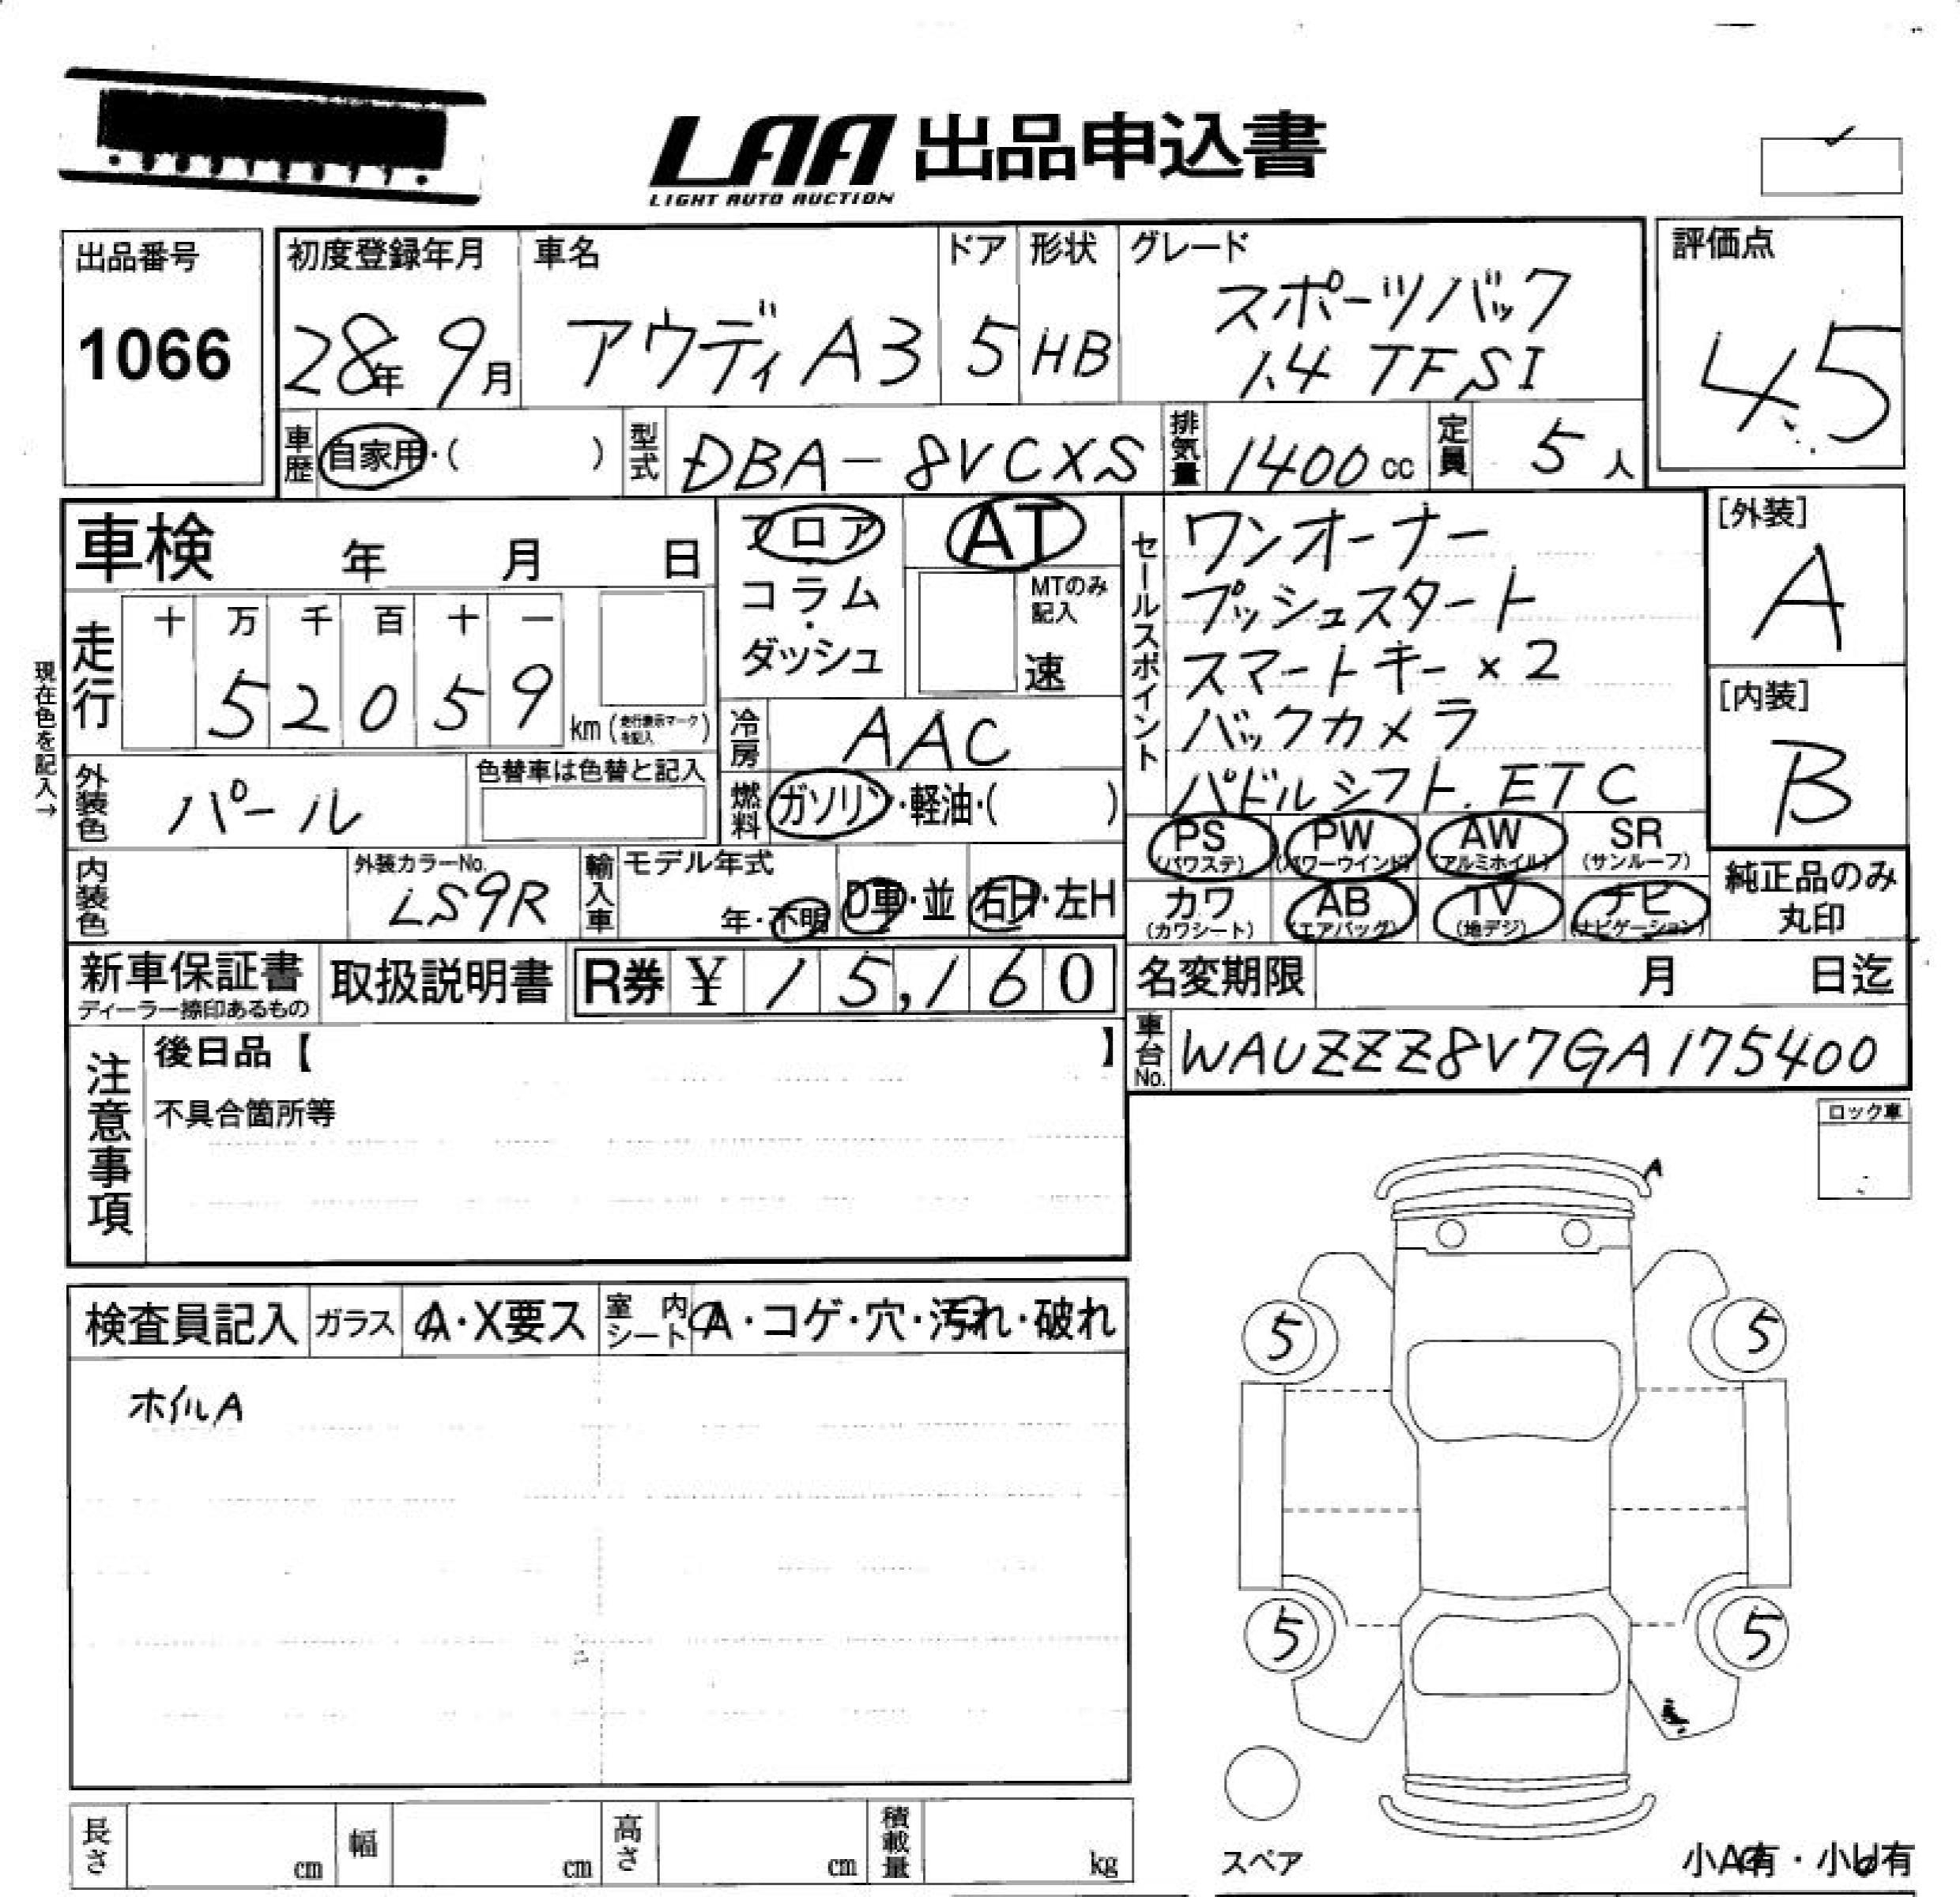 LAA 出品申込書
LIGHT AUTO AUCTION
出品番号
1066
初度登録年月
28年 9月
車名
アウディ A3
ドア
5
形状
HB
グレード
スポーツバック
1.4 TFSI
評価点
4.5
車歴
自家用・( )
型式
DBA-8VCXS
排気量
1400cc
定員
5人
車検 年 月 日
フロア
コラム
・
ダッシュ
AT
MTのみ
記入
速
セールスポイント
ワンオーナー
プッシュスタート
スマートキー×2
バックカメラ
パドルシフト. ETC
[外装]
A
[内装]
B
現在色を記入→
走行
十 万 千 百 十 一
5 2 0 5 9
km(走行表示マークを記入)
冷房
AAC
外装色
パール
色替車は色替と記入
燃料
ガソリン・軽油・( )
PS
(パワステ)
PW
(パワーウインド)
AW
(アルミホイル)
SR
(サンルーフ)
カワ
(カワシート)
AB
(エアバッグ)
TV
(地デジ)
ナビ
(ナビゲーション)
純正品のみ
丸印
内装色
外装カラーNo.
LS9R
輸入車
モデル年式
年・不明
D車・並
右H・左H
新車保証書
ディーラー捺印あるもの
取扱説明書
R券 ¥ 15,160
名変期限 月 日迄
車台No.
WAUZZZ8V7GA175400
注意事項
後日品【 】
不具合箇所等
ロック車
A
検査員記入
ガラス
A・X要ス
室内シート
A・コゲ・穴・汚れ・破れ
ホイルA
5
5
5
5
長さ cm
幅 cm
高さ cm
積載量 kg
スペア
小A有・小U有